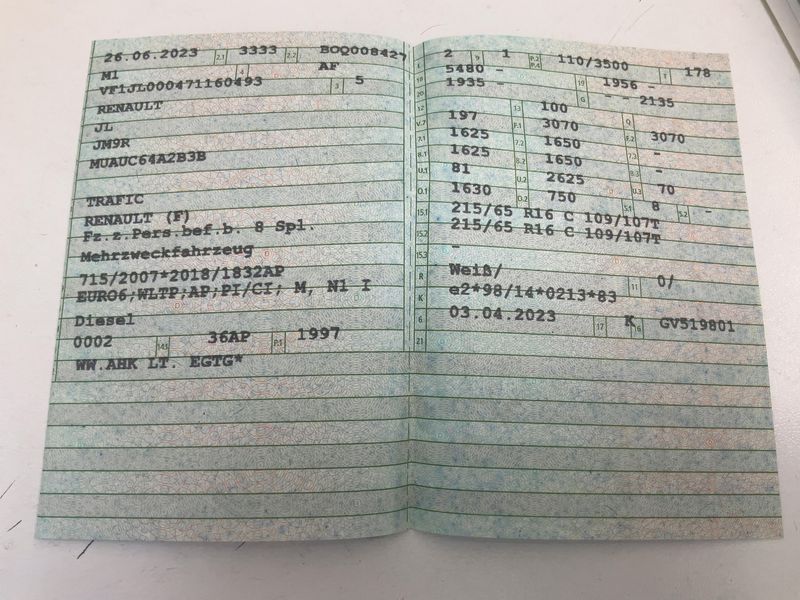 26.06.2023 2.1 3333 2.2 BOQ008427
M1 4 AF
VF1JL000471160493 3 5
RENAULT
JL
JM9R
MUAUC64A2B3B
TRAFIC
RENAULT (F)
Fz.z.Pers.bef.b. 8 Spl.
Mehrzweckfahrzeug
715/2007*2018/1832AP
EURO6;WLTP;AP;PI/CI; M, N1 I
Diesel
0002 14.1 36AP P.1 1997
WW.AHK LT. EGTG*
2 9 1 P.2 P.4 110/3500 T 178
18 5480 - 19 1956 -
20 1935 - G - - 2135
12 13 100 Q
V.7 197 F.1 3070 F.2 3070
7.1 1625 7.2 1650 7.3 -
8.1 1625 8.2 1650 8.3 -
U.1 81 U.2 2625 U.3 70
O.1 1630 O.2 750 S.1 8 S.2 -
15.1 215/65 R16 C 109/107T
15.2 215/65 R16 C 109/107T
15.3 -
R Weiß/ 11 0/
K e2*98/14*0213*83
6 03.04.2023 17 K 16 GV519801
21